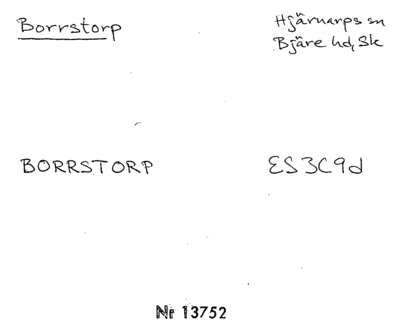 Borrstorp
Hjärnarps sn
Bjäre hd, Sk
BORRSTORP
ES3C9d
Nr 13752